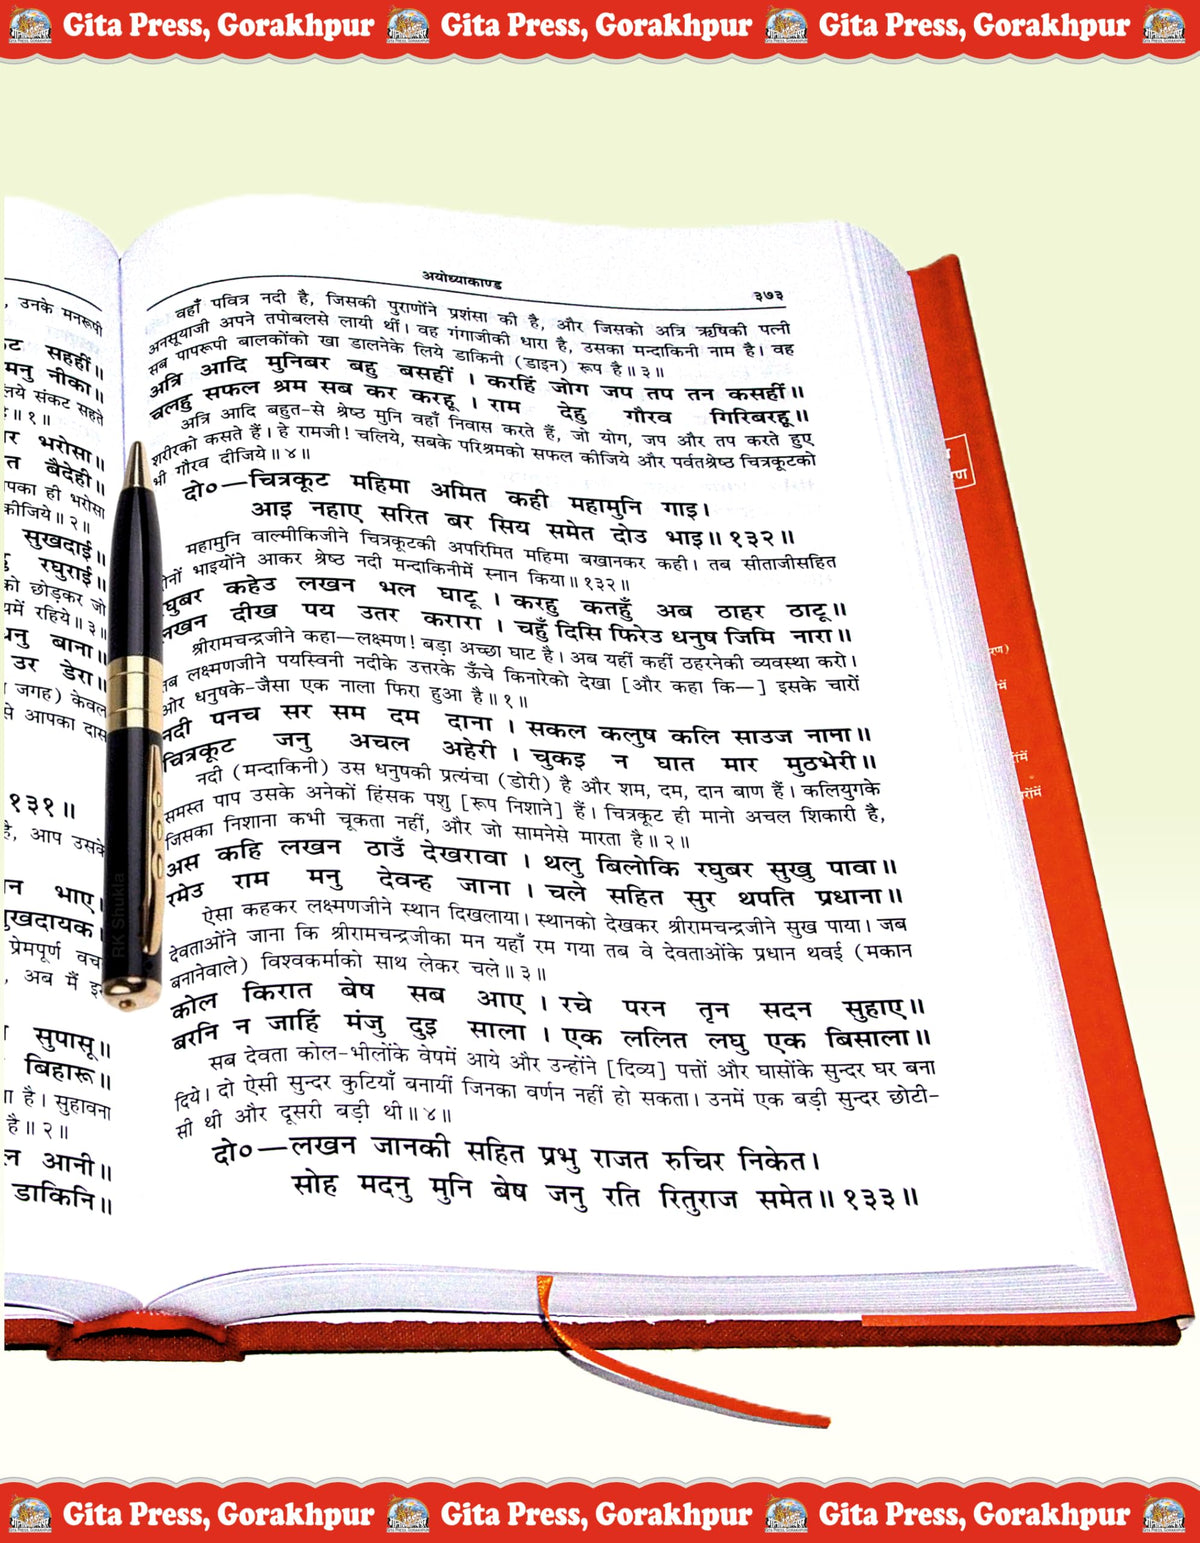 Gita Press, Gorakhpur Gita Press, Gorakhpur Gita Press, Gorakhpur
, उनके मनरूपी
सहहीं॥
मनु नीका॥
लिये संकट सहते
है॥१॥
भरोसा॥
त बैदेही॥
पका ही भरोसा
कीजिये॥२॥
सुखदाई॥
रघुराई॥
को छोड़कर जो
यमें रहिये॥३॥
बाना॥
उर डेरा॥
जगह) केवल
से आपका दास
१३१॥
है, आप उसके
न भाए।
सुखदायक।
प्रेमपूर्ण
, अब मैं
सुपासू॥
बिहारू॥
है। सुहावना
है॥२॥
आनी॥
डाकिनि॥
अयोध्याकाण्ड ३७३
वहाँ पवित्र नदी है, जिसकी पुराणोंने प्रशंसा की है, और जिसको अत्रि ऋषिकी पत्नी
अनसूयाजी अपने तपोबलसे लायी थीं। वह गंगाजीकी धारा है, उसका मन्दाकिनी नाम है। वह
सब पापरूपी बालकोंको खा डालनेके लिये डाकिनी (डाइन) रूप है॥३॥
अत्रि आदि मुनिबर बहु बसहीं । करहिं जोग जप तप तन कसहीं॥
चलहु सफल श्रम सब कर करहू । राम देहु गौरव गिरिबरहू॥
अत्रि आदि बहुत-से श्रेष्ठ मुनि वहाँ निवास करते हैं, जो योग, जप और तप करते हुए
शरीरको कसते हैं। हे रामजी! चलिये, सबके परिश्रमको सफल कीजिये और पर्वतश्रेष्ठ चित्रकूटको
भी गौरव दीजिये॥४॥
दो०—चित्रकूट महिमा अमित कही महामुनि गाइ।
आइ नहाए सरित बर सिय समेत दोउ भाइ॥१३२॥
महामुनि वाल्मीकिजीने चित्रकूटकी अपरिमित महिमा बखानकर कही। तब सीताजीसहित
दोनों भाइयोंने आकर श्रेष्ठ नदी मन्दाकिनीमें स्नान किया॥१३२॥
रघुबर कहेउ लखन भल घाटू । करहु कतहुँ अब ठाहर ठाटू॥
लखन दीख पय उतर करारा । चहुँ दिसि फिरेउ धनुष जिमि नारा॥
श्रीरामचन्द्रजीने कहा—लक्ष्मण! बड़ा अच्छा घाट है। अब यहीं कहीं ठहरनेकी व्यवस्था करो।
तब लक्ष्मणजीने पयस्विनी नदीके उत्तरके ऊँचे किनारेको देखा [और कहा कि—] इसके चारों
ओर धनुषके-जैसा एक नाला फिरा हुआ है॥१॥
नदी पनच सर सम दम दाना । सकल कलुष कलि साउज नाना॥
चित्रकूट जनु अचल अहेरी । चुकइ न घात मार मुठभेरी॥
नदी (मन्दाकिनी) उस धनुषकी प्रत्यंचा (डोरी) है और शम, दम, दान बाण हैं। कलियुगके
समस्त पाप उसके अनेकों हिंसक पशु [रूप निशाने] हैं। चित्रकूट ही मानो अचल शिकारी है,
जिसका निशाना कभी चूकता नहीं, और जो सामनेसे मारता है॥२॥
अस कहि लखन ठाउँ देखरावा । थलु बिलोकि रघुबर सुखु पावा॥
रमेउ राम मनु देवन्ह जाना । चले सहित सुर थपति प्रधाना॥
ऐसा कहकर लक्ष्मणजीने स्थान दिखलाया। स्थानको देखकर श्रीरामचन्द्रजीने सुख पाया। जब
देवताओंने जाना कि श्रीरामचन्द्रजीका मन यहाँ रम गया तब वे देवताओंके प्रधान थवई (मकान
बनानेवाले) विश्वकर्माको साथ लेकर चले॥३॥
कोल किरात बेष सब आए । रचे परन तृन सदन सुहाए॥
बरनि न जाहिं मंजु दुइ साला । एक ललित लघु एक बिसाला॥
सब देवता कोल-भीलोंके वेषमें आये और उन्होंने [दिव्य] पत्तों और घासोंके सुन्दर घर बना
दिये। दो ऐसी सुन्दर कुटियाँ बनायीं जिनका वर्णन नहीं हो सकता। उनमें एक बड़ी सुन्दर छोटी-
सी थी और दूसरी बड़ी थी॥४॥
दो०—लखन जानकी सहित प्रभु राजत रुचिर निकेत।
सोह मदनु मुनि बेष जनु रति रितुराज समेत॥१३३॥
RK Shukla
Gita Press, Gorakhpur Gita Press, Gorakhpur Gita Press, Gorakhpur